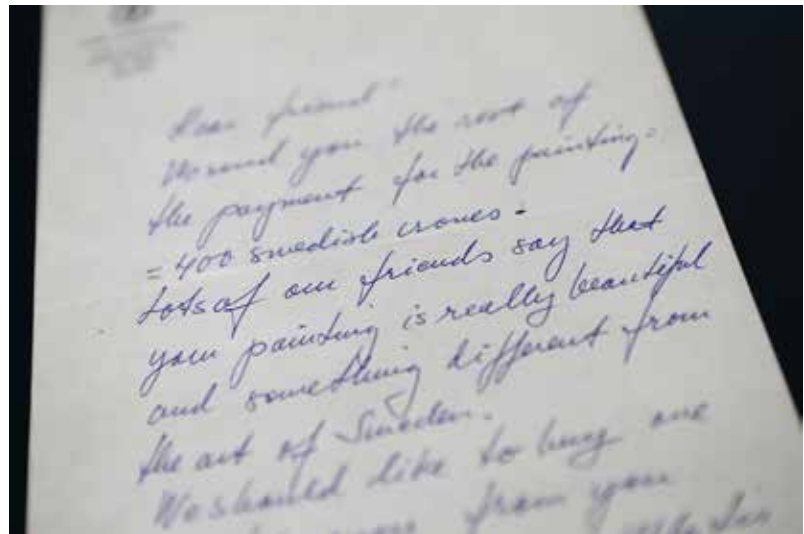 Dear friend -
We send you the rest of
the payment for the painting -
= 400 swedish crones -
Lots of our friends say that
your painting is really beautiful
and something different from
the art of Sweden.
We should like to buy one
from you